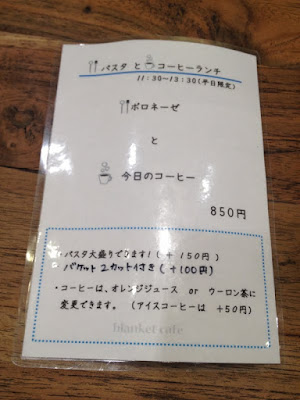 パスタ と コーヒーランチ
11:30～13:30(平日限定)
ボロネーゼ
と
今日のコーヒー
850円
・パスタ大盛りできます!(+ 150円)
バケット 2カット付き (+100円)
・コーヒーは、オレンジジュース or ウーロン茶に
変更できます。 (アイスコーヒーは +50円)
blanket cafe